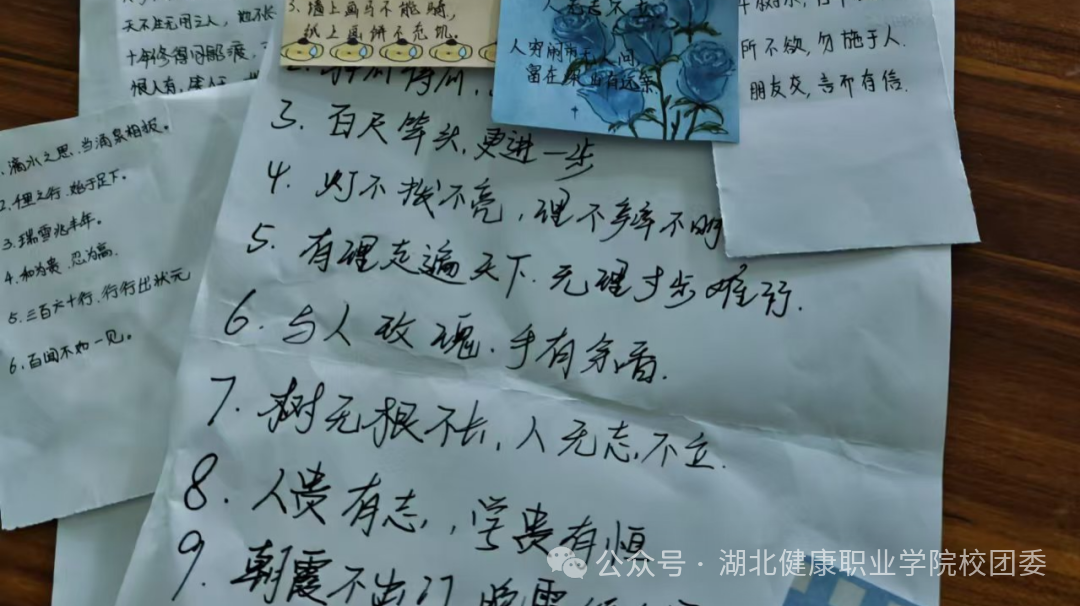 天不生无用之人，地不长
十年修得同船渡，
恨人有，笑人
5、墙上画马不能骑，
纸上画饼不充饥。
人穷闹市无人问，
所不欲，勿施于人.
朋友交，言而有信.
1、滴水之恩，当涌泉相报。
2、千里之行，始于足下。
3、瑞雪兆丰年。
4、和为贵，忍为高.
5、三百六十行，行行出状元
6、百闻不如一见。
3. 百尺竿头，更进一步
4. 灯不拨不亮，理不辩不明
5. 有理走遍天下.无理寸步难行.
6. 与人玫瑰.手有余香.
7. 树无根不长，人无志不立.
8. 人贵有志，学贵有恒
9. 朝霞不出门
公众号·湖北健康职业学院校团委